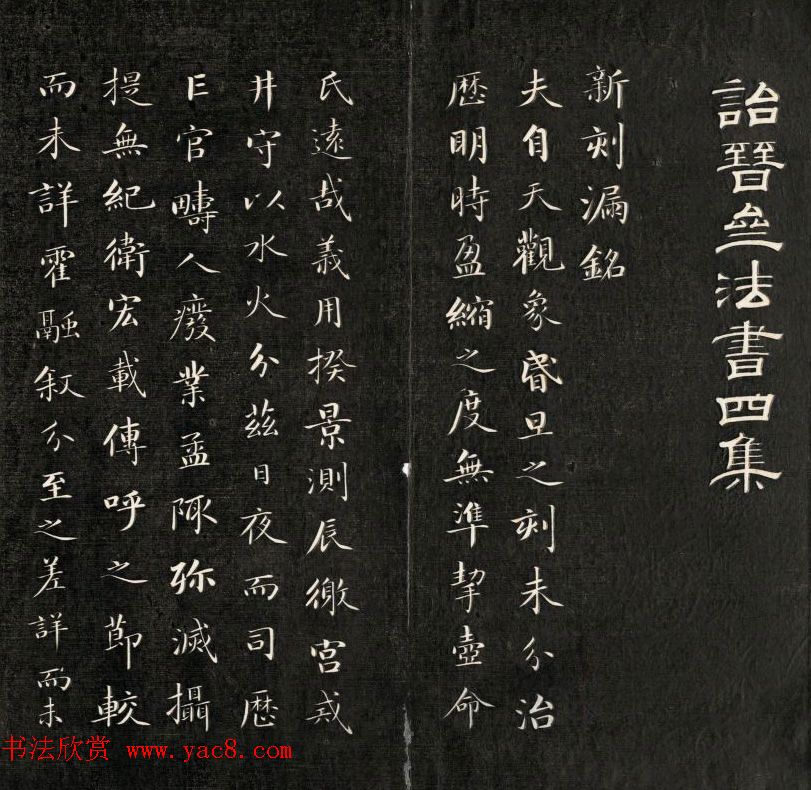 詒晉亝法書四集
新刻漏銘
夫自天觀象昬旦之刻未分治
歷明時盈縮之度無準挈壺命
氏遠哉義用揆景測辰徼宮戒
井守以水火分茲日夜而司歷
亡官疇人廢業孟陬殄滅攝
提無紀衛宏載傳呼之節較
而未詳霍融叙分至之差詳而未
书法欣赏 www.yac8.com